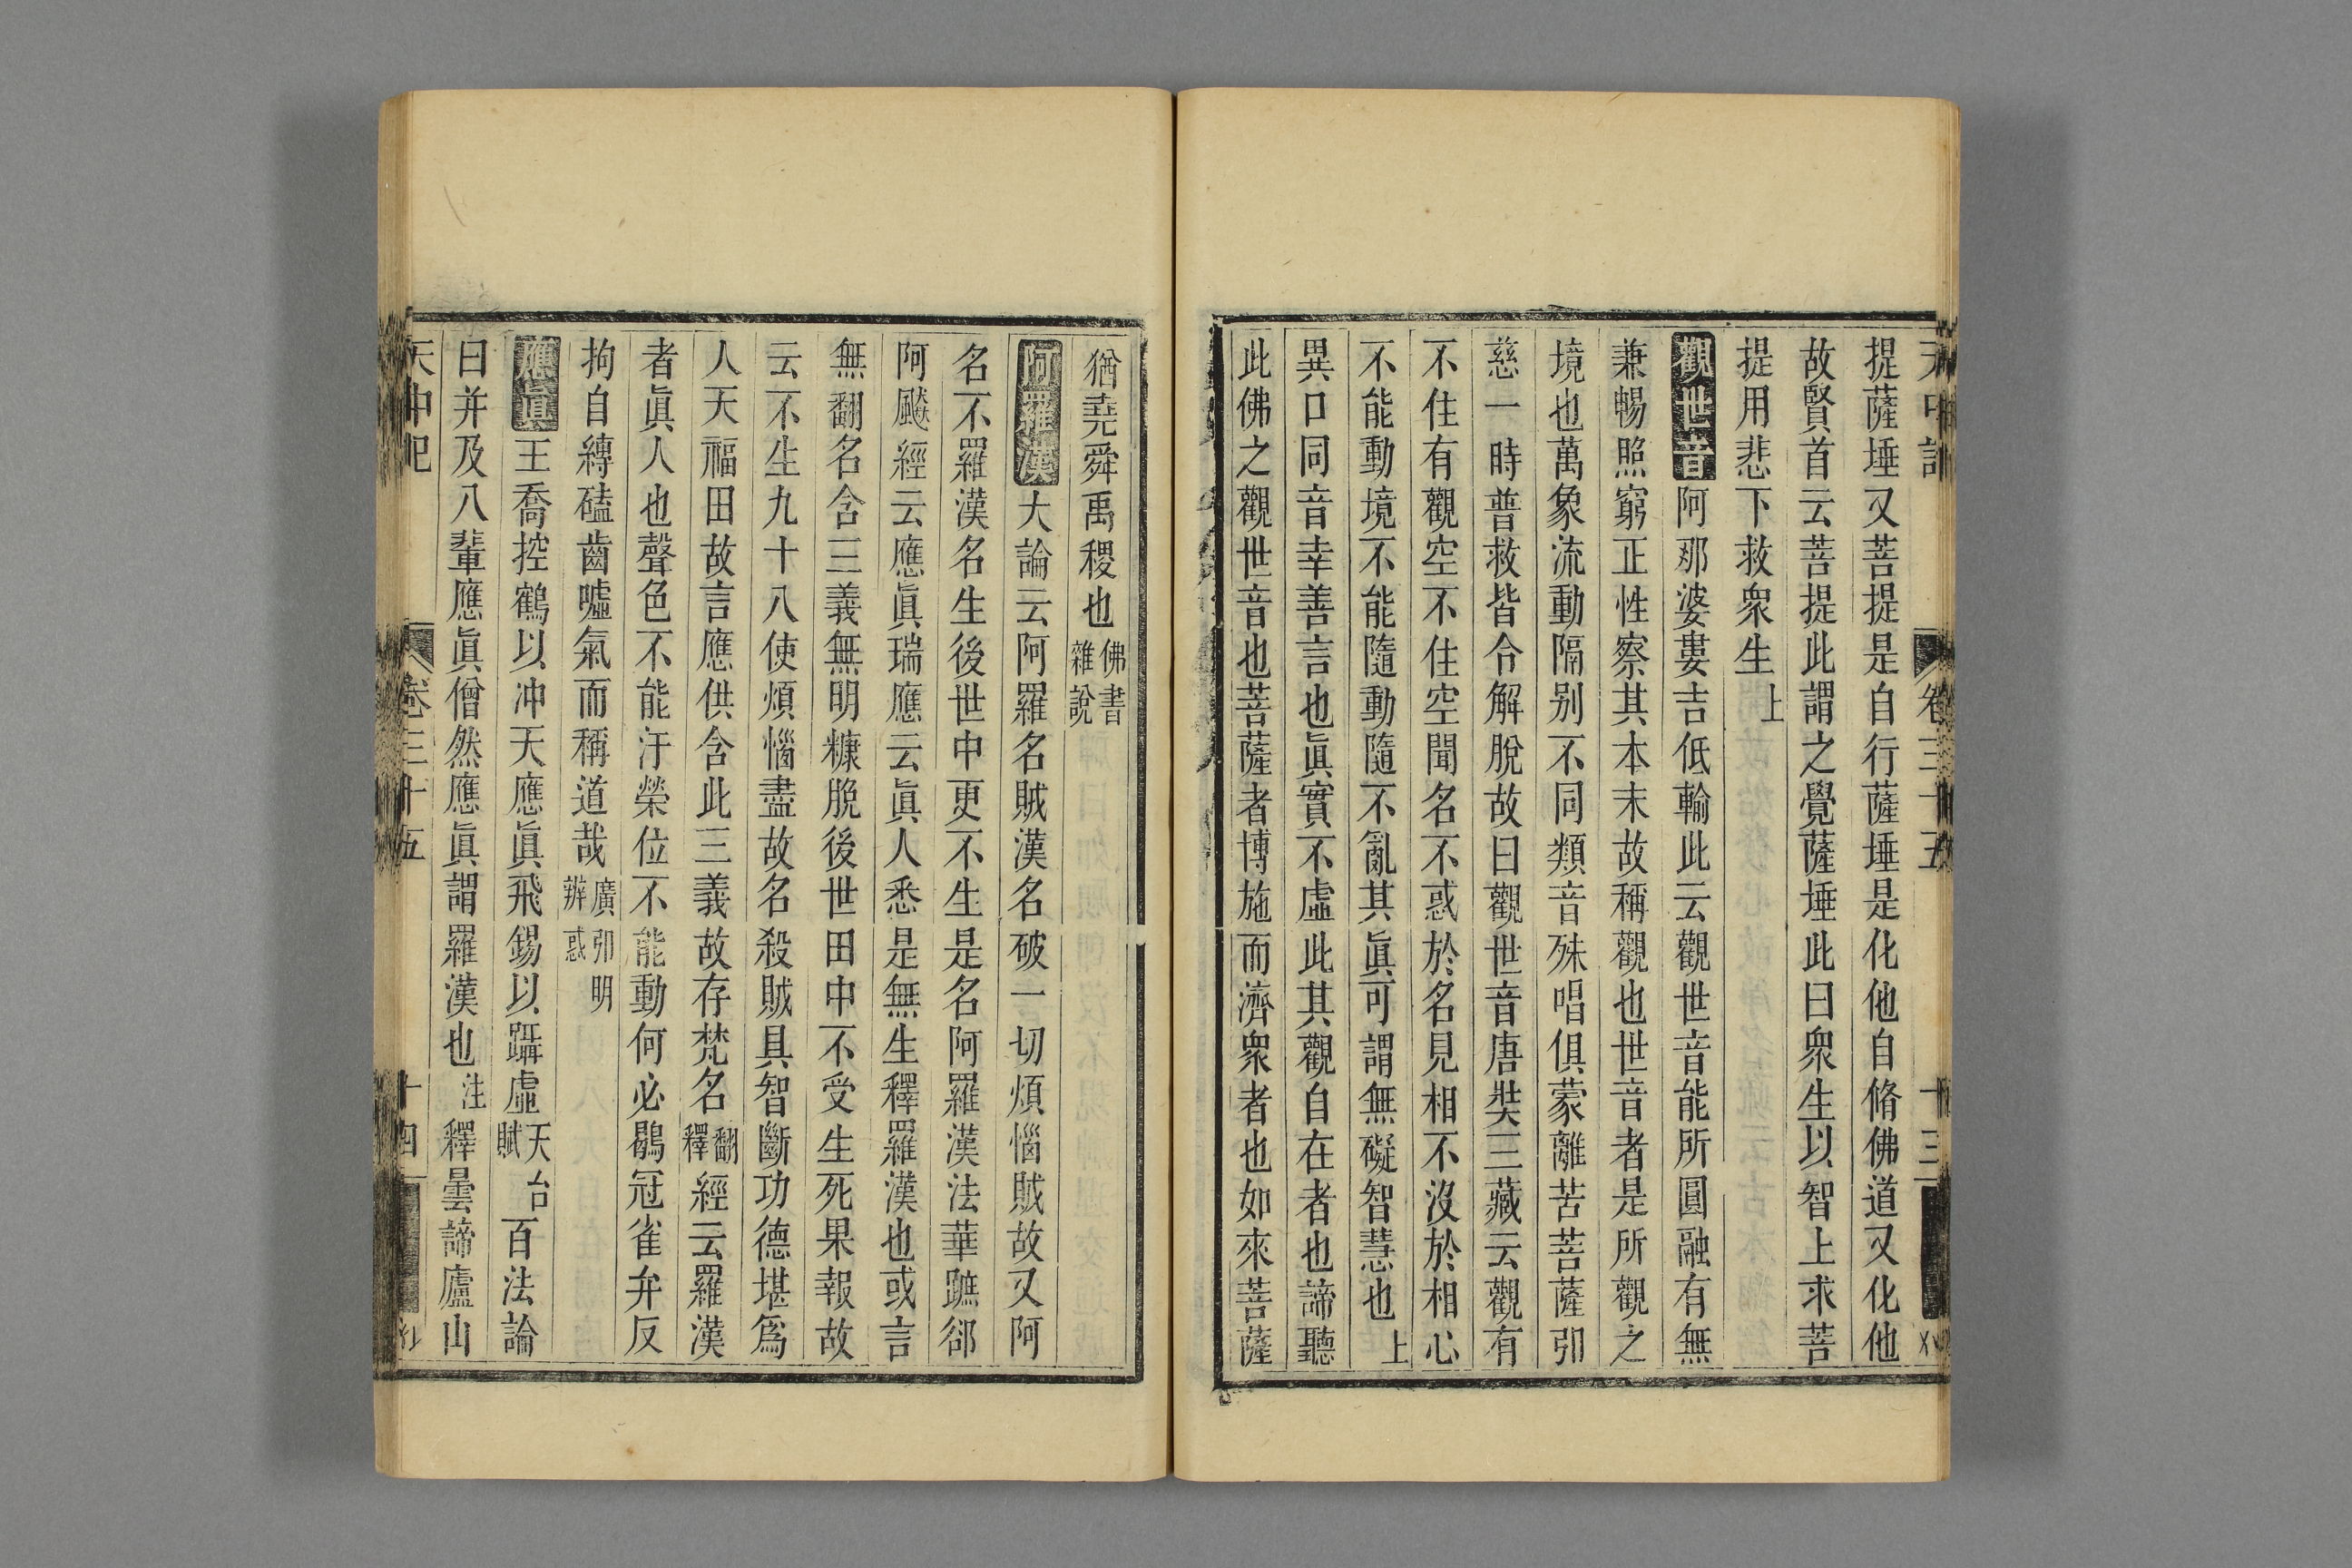 天中記 卷三十五 十三
提薩埵又菩提是自行薩埵是化他自脩佛道又化他
故賢首云菩提此謂之覺薩埵此曰衆生以智上求菩
提用悲下救衆生上
觀世音阿那婆婁吉低輸此云觀世音能所圓融有無
兼暢照窮正性察其本末故稱觀也世音者是所觀之
境也萬象流動隔别不同類音殊唱俱蒙離苦菩薩卭
慈一時普救皆令解脫故曰觀世音唐奘三藏云觀有
不住有觀空不住空聞名不惑於名見相不沒於相心
不能動境不能隨動隨不亂其眞可謂無礙智慧也上
異口同音幸善言也眞實不虛此其觀自在者也諦聽
此佛之觀世音也菩薩者博施而濟衆者也如來菩薩
猶堯舜禹稷也佛書雜說
阿羅漢大論云阿羅名賊漢名破一切煩惱賊故又阿
名不羅漢名生後世中更不生是名阿羅漢法華䟽郤
阿颰經云應眞瑞應云眞人悉是無生釋羅漢也或言
無翻名含三義無明糠脫後世田中不受生死果報故
云不生九十八使煩惱盡故名殺賊具智斷功德堪爲
人天福田故言應供含此三義故存梵名翻釋經云羅漢
者眞人也聲色不能汙榮位不能動何必鶡冠雀弁反
拘自縳磕齒噓氣而稱道哉廣卭明辨惑
應眞王喬控鶴以沖天應眞飛錫以躡虛天台賦百法論
曰并及八輩應眞僧然應眞謂羅漢也注釋曇諦廬山
天中記 卷三十五 十四